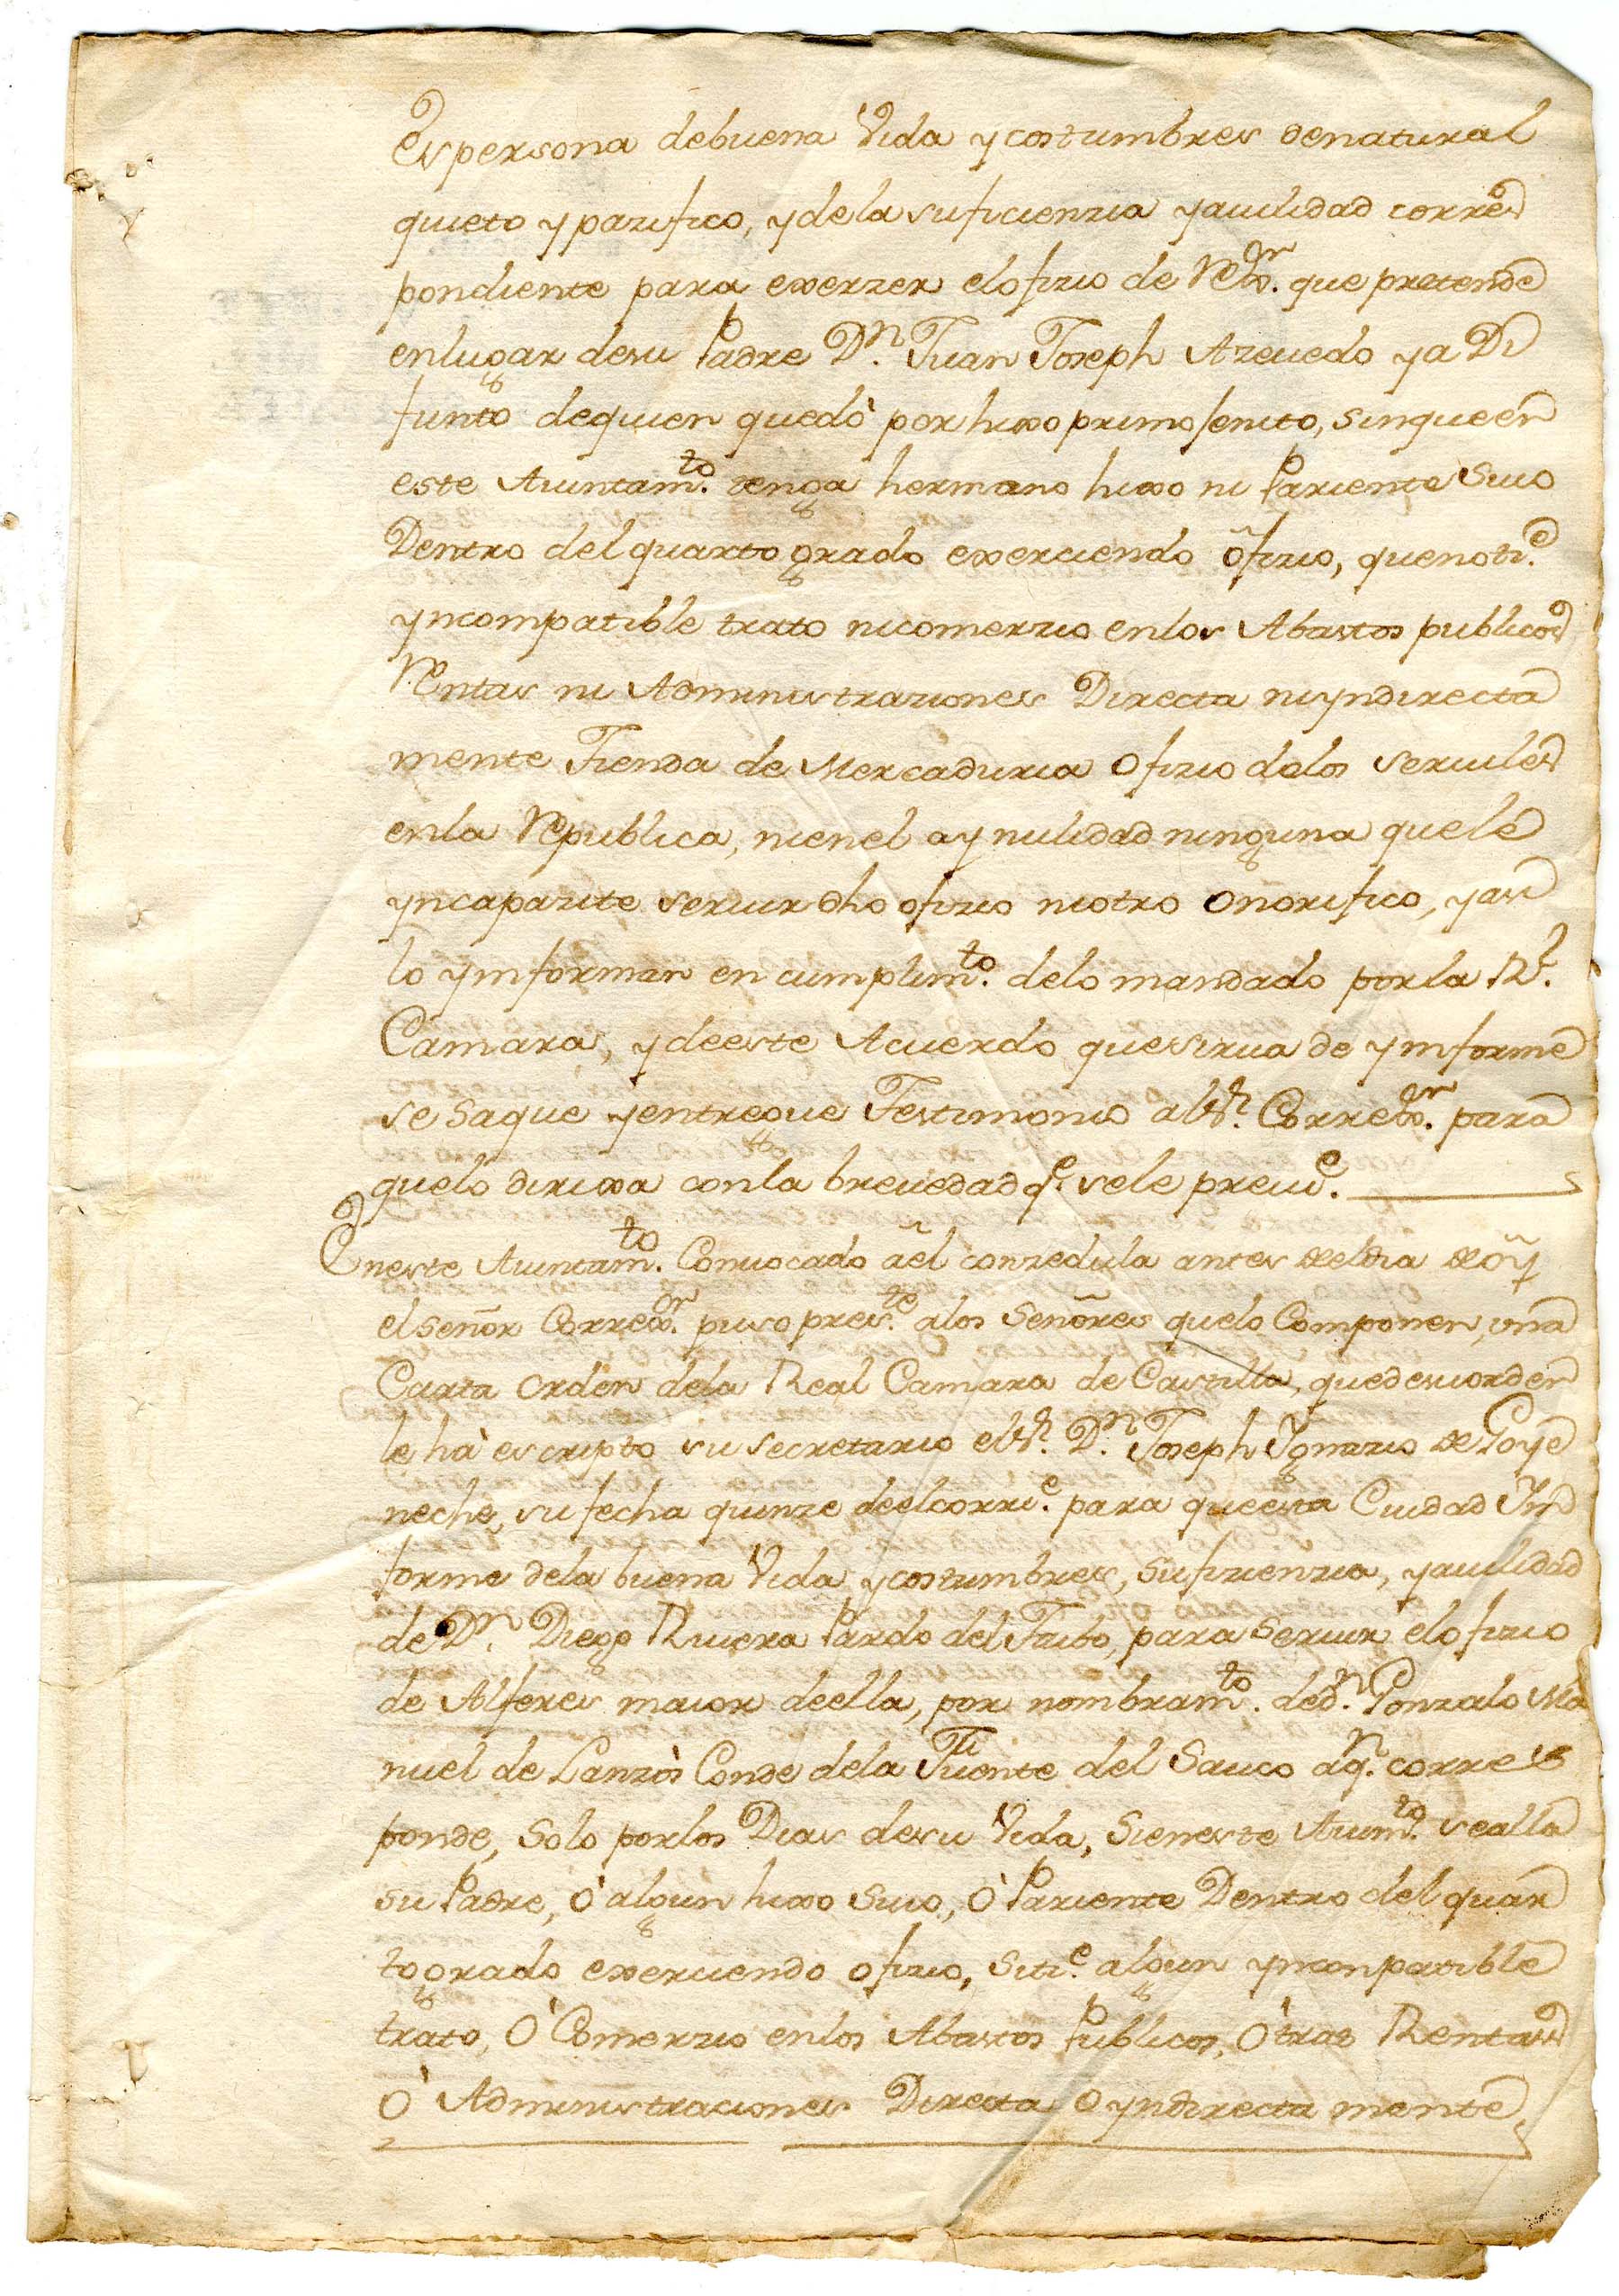 es persona debuena Vida y costumbres denatural
quieto y pazifico, y dela suficienzia y auilidad corres
pondiente para exerzer elofizio de Rexor. que pretende
enlugar desu Padre Dn. Juan Joseph Azeuedo ya Di
funto dequien quedò por hixo primojenito, sinqueen
este Aiuntamto. tenga hermano hixo ni Pariente Suio
Dentro del quarto grado exerciendo ofizio, quenotie.
yncompatible trato nicomerzio enlos Abastos publicos
Rentas ni Administraziones Directa niyndirecta
mente Tienda de Mercaduria Ofizio delos seruiles
enla Republica, nienel ay nulidad ninguna quele
yncapazite seruir dho ofizio niotro Onorifico, y asi
lo ynforman en cumplimto. delo mandado porla Rl.
Camara, y deeste Acuerdo quesirua de ynforme
se saque yentregue Testimonio alSr. Correxor. para
quelo dirixa conla breuedad qe. sele preuie.
Eneste Aiuntamto. Conuocado ãel conzedula antes deeldia deoy
elseñor Correxor. puso preste. alos Señores quelo Componen, vna
Carta orden dela Real Camara de Castilla, quedesuorden
le hà escripto su secretario elSr. Dn. Joseph Ygnazio de Goye
neche, su fecha quinze deelcorrie. para queesta Ciudad Yn
forme dela buena Vida y costumbres, sufizienzia, y auilidad
de Dn. Diego Riuera Pardo del Frito, para Seruir elofizio
de Alferes maior deella, por nombramto. deDn. Gonzalo Ma
nuel de Lanzòs Conde dela Fuente del Sauco aqn. corres
ponde, Solo porlos Dias desu Vida, Sieneste Aiunto. sealla
su Padre, ò algun hixo Suio, ò Pariente Dentro del quar
to grado exerciendo ofizio, Sitie. algun ynconpatible
trato, ò Comerzio enlos Abastos Publicos, òtras Rentas
ò Administraciones Directa o yndirectamente,